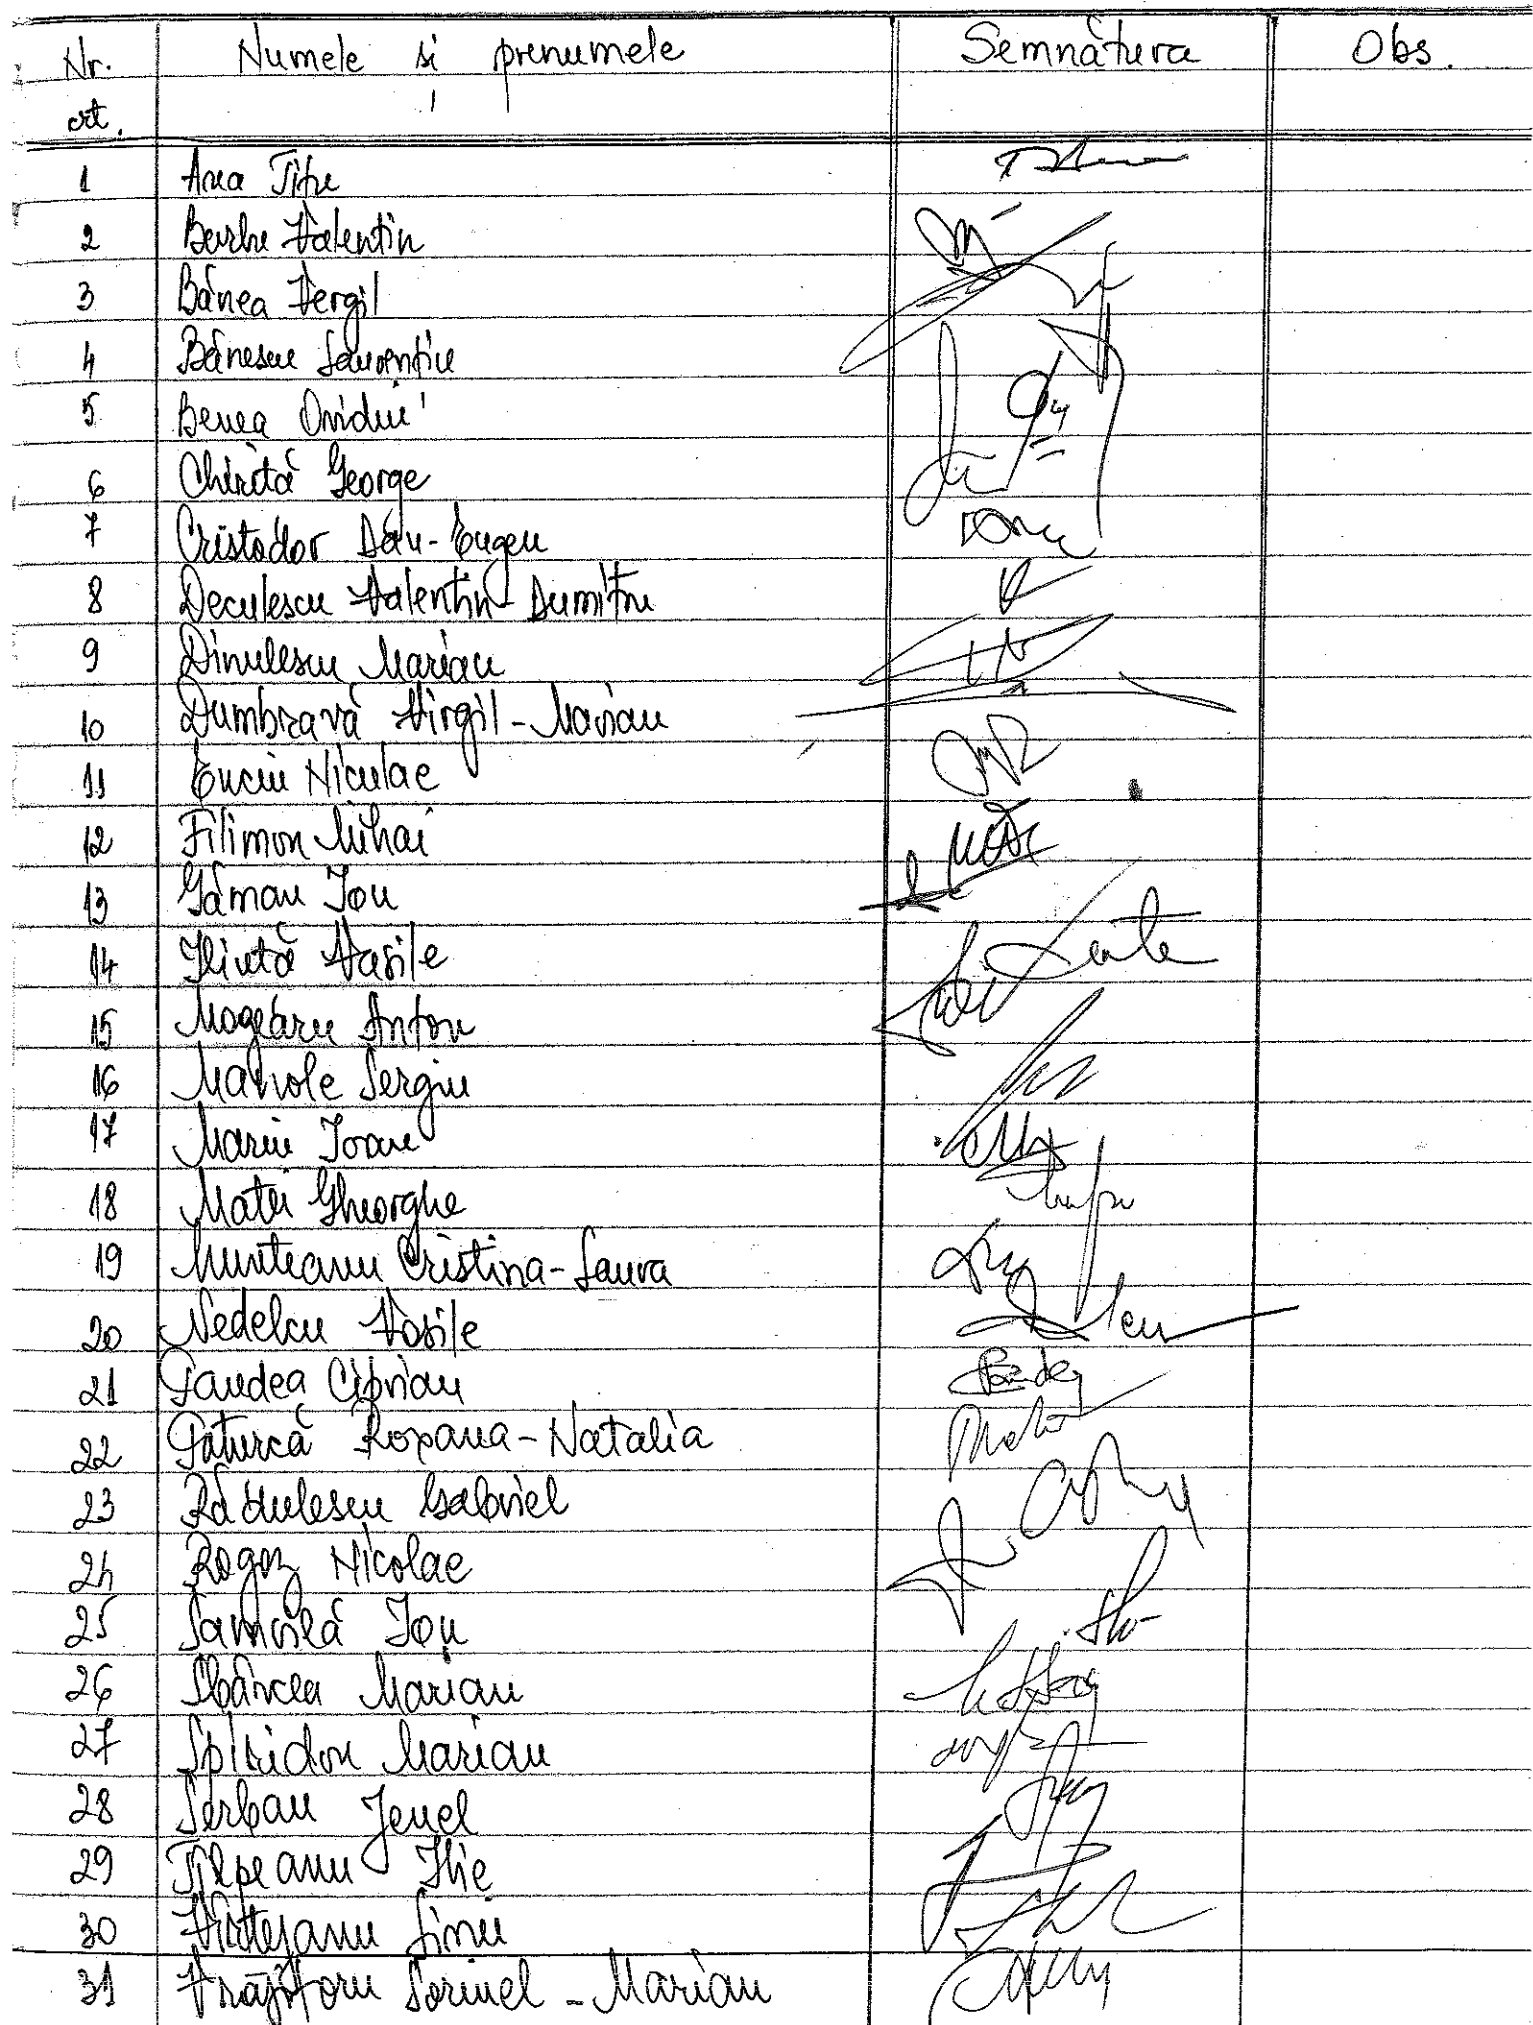 Nr. Numele și prenumele Semnătura Obs.
crt.
1 Ana Titu
2 Barbu Valentin
3 Bănea Vergil
4 Bănescu Laurențiu
5 Benea Ovidiu
6 Chiriță George
7 Cristodor Dan-Eugen
8 Deculescu Valentin-Dumitru
9 Dinulescu Marian
10 Dumbravă Virgil-Marian
11 Enciu Niculae
12 Filimon Mihai
13 Găman Ion
14 Iliuță Vasile
15 Mogearu Anton
16 Manole Sergiu
17 Marin Ioan
18 Matei Gheorghe
19 Munteanu Cristina-Laura
20 Nedelcu Vasile
21 Pandea Ciprian
22 Păturcă Roxana-Natalia
23 Rădulescu Gabriel
24 Rogoz Nicolae
25 Samoilă Ion
26 Sbârcea Marian
27 Spiridon Marian
28 Șerban Jenel
29 Tilpeanu Ilie
30 VișteJanu Liniu
31 Vrăjitoru Sorinel-Marian